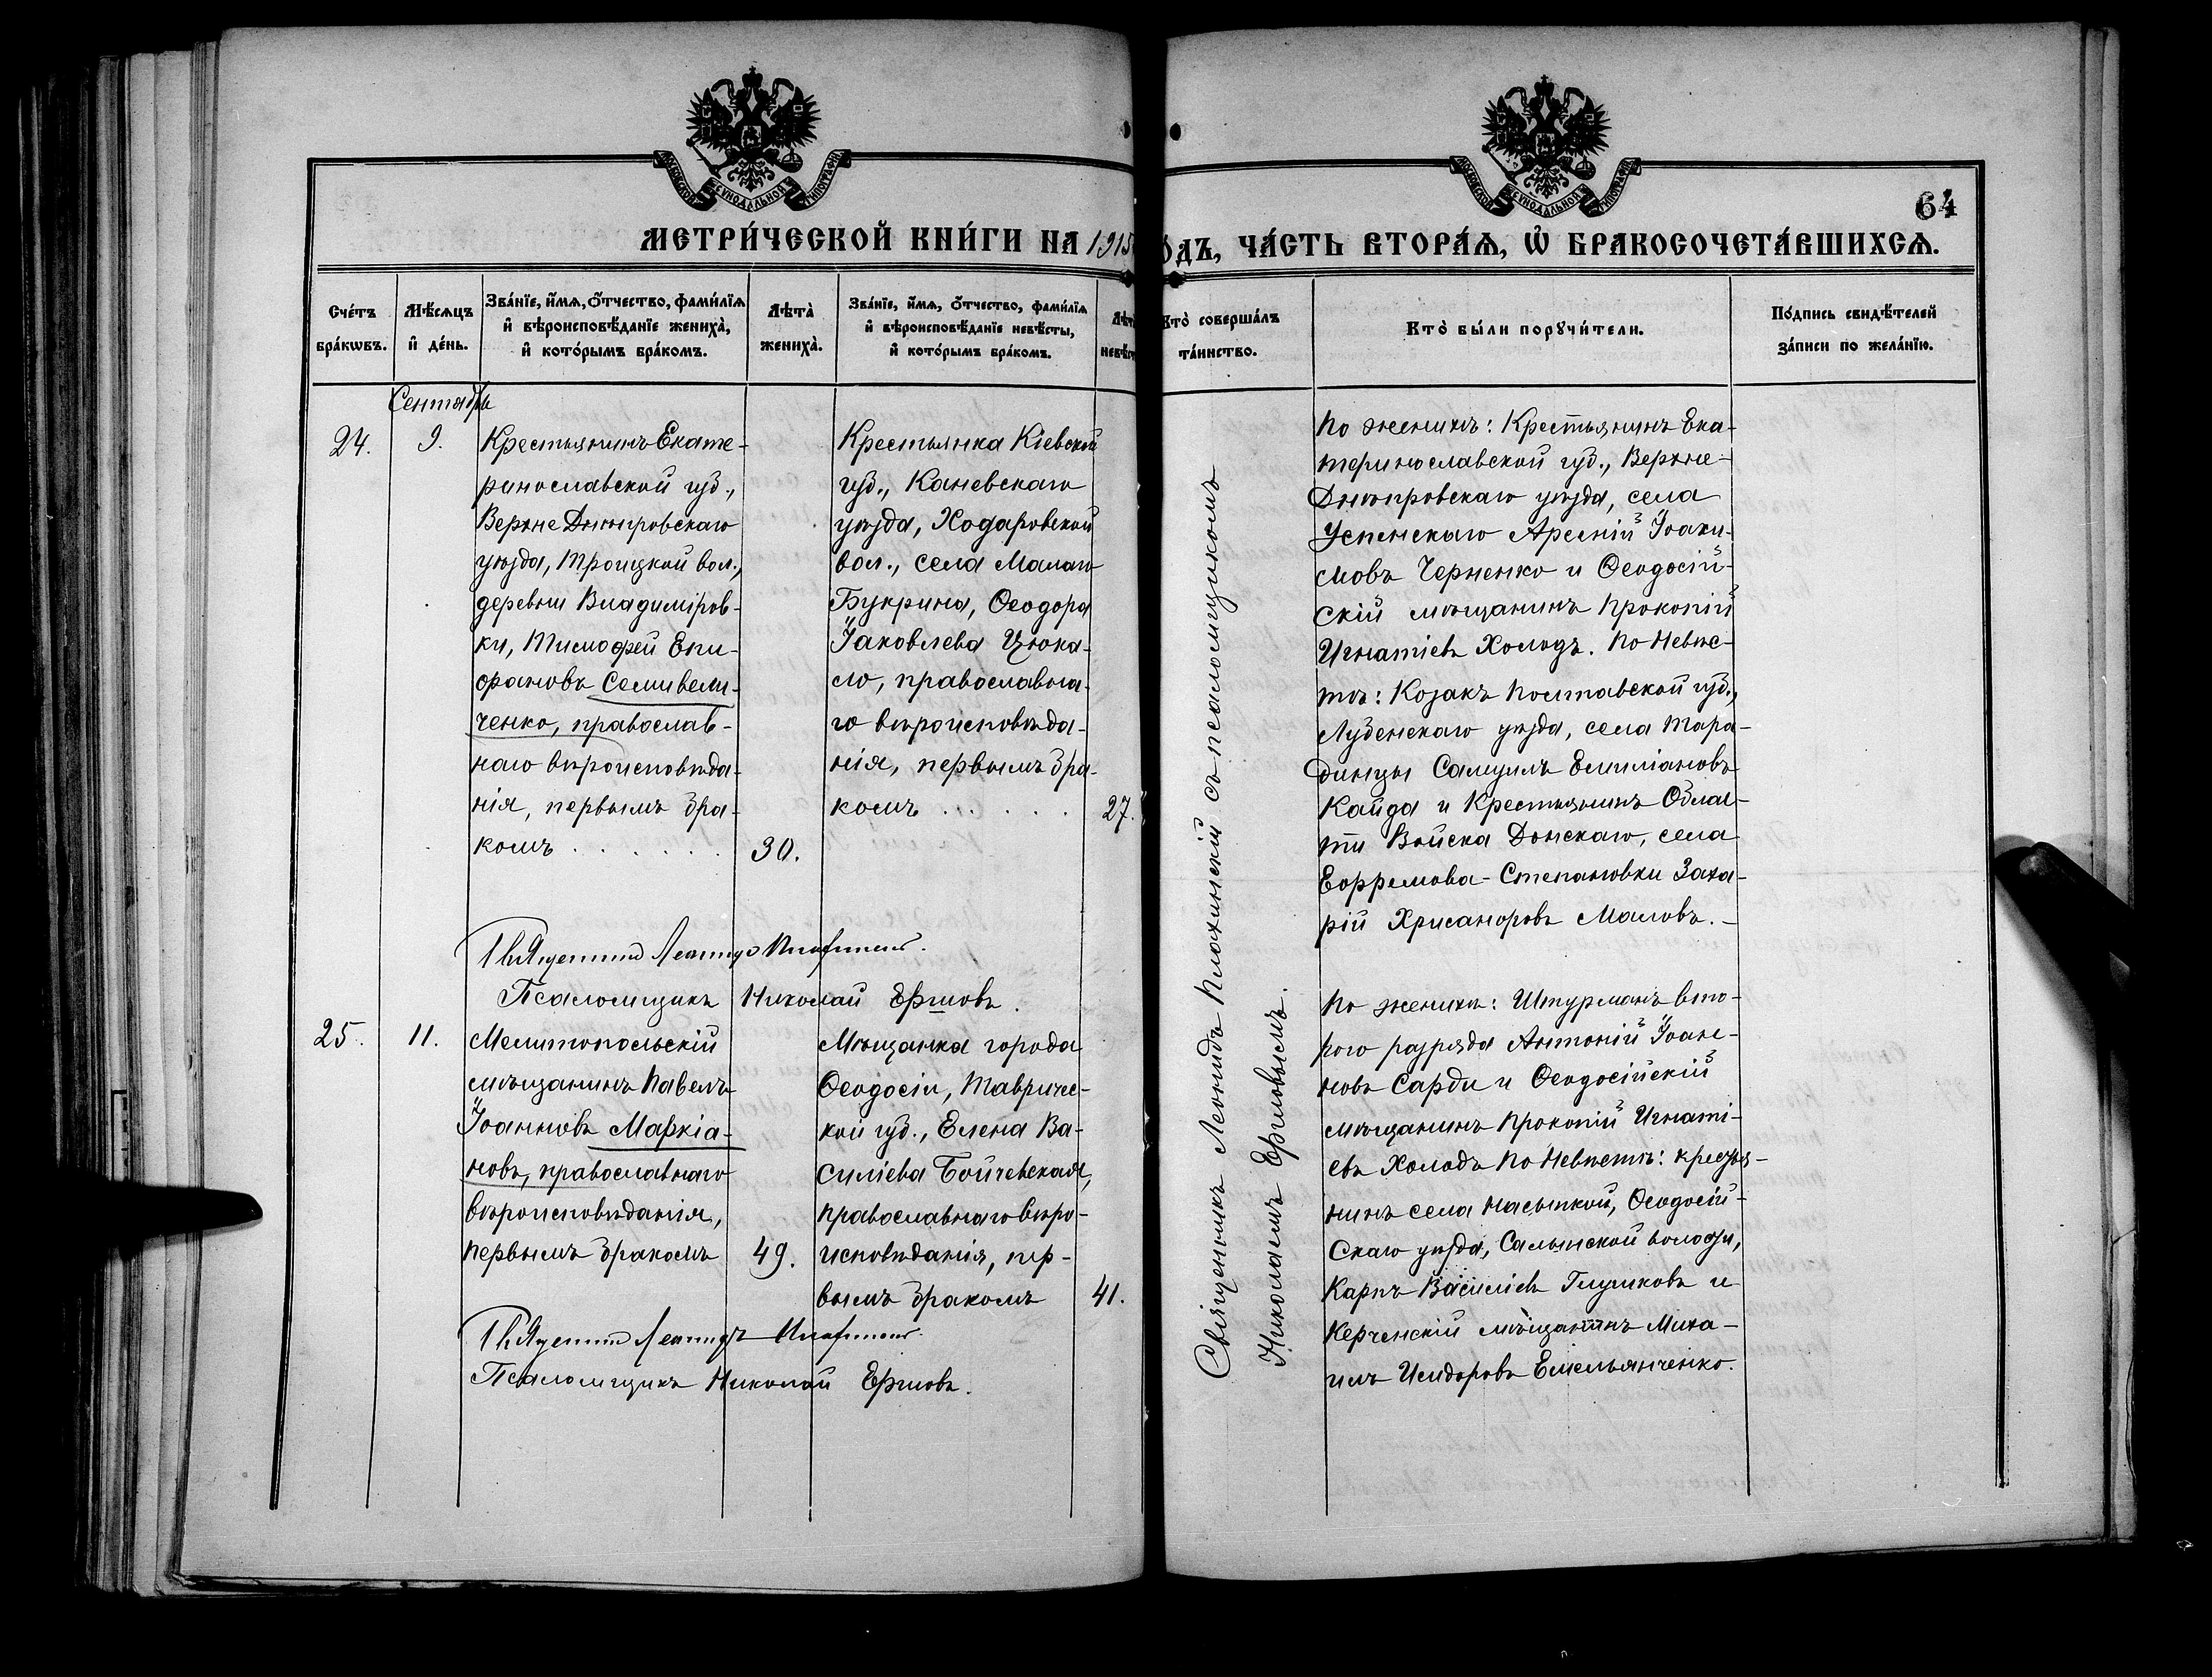 МОСКОВСКОЙ СѴНОДАЛЬНОЙ ТИПОГРАФІИ
МОСКОВСКОЙ СѴНОДАЛЬНОЙ ТИПОГРАФІИ
64
МЕТРИ́ЧЕСКОЙ КНИ́ГИ НА 1915
ОДЪ, ЧА́СТЬ ВТОРА́Ѧ, Ѽ БРАКОСОЧЕТА́ВШИХСѦ.
Сче́тъ
бра́кѡвъ.
Мѣ́сѧцъ
и҆ де́нь.
Зва́нїе, и҆́мѧ, ѻ҆́тчество, фами́лїѧ
и҆ вѣроисповѣ́данїе жениха̀,
и҆ кото́рымъ бра́комъ.
Лѣта̀
жениха̀.
Зва́нїе, и҆́мѧ, ѻ҆́тчество, фами́лїѧ
и҆ вѣроисповѣ́данїе невѣ́сты,
и҆ кото́рымъ бра́комъ.
Лѣта̀
невѣс
Кто̀ соверша́лъ
та́инство.
Кто̀ бы́ли порꙋчи́тели.
По́дпись свидѣ́телей
за́писи по жела́нїю.
Сентябрь
24.
9.
Крестьянинъ Екате-
ринославской губ.,
Верхне Днѣпровскаго
уѣзда, Троицкой вол.,
деревни Владиміров-
ки, Тимофей Епи-
фановъ Семивели-
ченко, православ-
наго вѣроисповѣда-
нія, первымъ бра-
комъ . . . . . .
30.
Крестьянка Кіевской
губ., Каневскаго
уѣзда, Ходаровской
вол., села Малаго
Букрина, Ѳеодора
Іаковлева Цюка-
ло, православна-
го вѣроисповѣда-
нія, первымъ бра-
комъ . . . . .
27.
Священникъ Леонидъ Плахинскій съ псаломщикомъ
Николаемъ Ершовымъ.
По женихѣ: Крестьянинъ Ека-
теринославской губ., Верхне-
Днѣпровскаго уѣзда, села
Успенскаго Арсеній Іоаки-
мовъ Черненко и Ѳеодосій-
скій мѣщанинъ Прокопій
Игнатіевъ Холодъ. По Невѣс-
тѣ: Козакъ Полтавской губ.,
Лубенскаго уѣзда, села Тара-
динцы Самуилъ Емиліановъ
Кайда и Крестьянинъ Облас-
ти Войска Донскаго, села
Ефремова-Степановки Заха-
рій Хрисанфовъ Маловъ.
Священникъ Леонидъ Плахинскій.
Псаломщикъ Николай Ершовъ.
25.
11.
Мелитопольскій
мѣщанинъ Павелъ
Іоанновъ Маркіа-
новъ, православнаго
вѣроисповѣданія,
первымъ бракомъ
49.
Мѣщанка города
Ѳеодосіи, Тавриче-
кой губ., Елена Ва-
силіева Бойчевская,
православнаго вѣро-
исповѣданія, пер-
вымъ бракомъ
41.
По женихѣ: Штурманъ вто-
рого разряда Антоній Іоан-
новъ Сарди и Ѳеодосійскій
мѣщанинъ Прокопій Игнаті-
евъ Холодъ По Невѣстѣ: крестья-
нинъ села Насыпкой, Ѳеодосій-
скаго уѣзда, Салынской волости,
Карпъ Василіевъ Глушковъ и
Керченскій мѣщанинъ Миха-
илъ Исидоровъ Емельянченко.
Священникъ Леонидъ Плахинскій.
Псаломщикъ Николай Ершовъ.